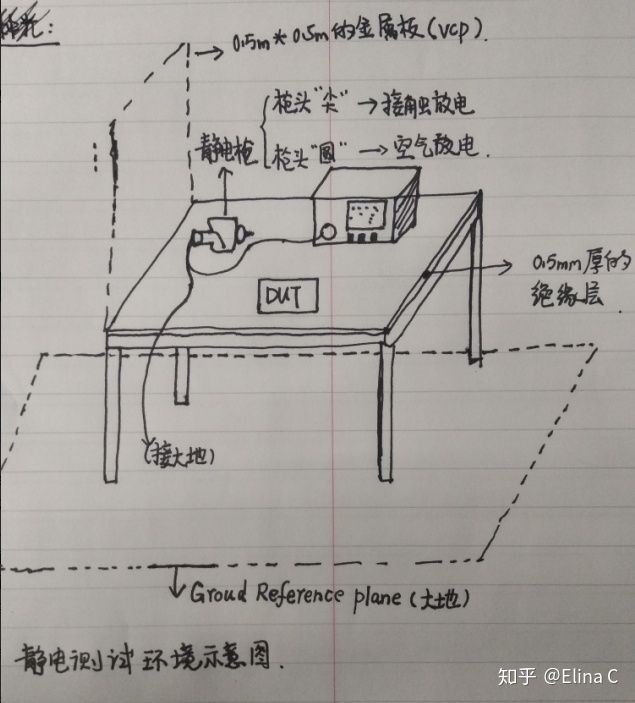 0.5m * 0.5m的金属板(VCP).
枪头"尖" → 接触放电
静电枪
枪头"圆" → 空气放电.
DUT
0.5mm厚的
绝缘层.
(接大地)
Groud Reference plane (大地)
静电测试环境示意图.
知乎 @Elina C